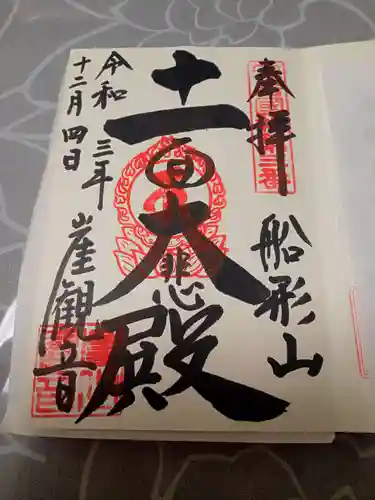 奉拝
船形山
十一面大悲殿
崖観音
令和三年
十二月四日